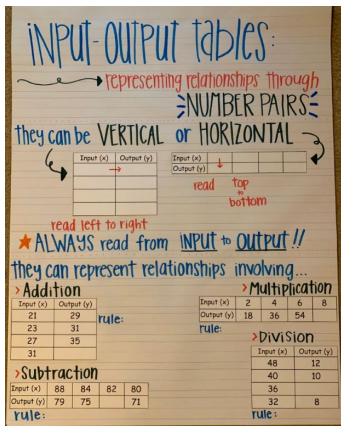 INPUT-OUTPUT tables:
representing relationships through
NUMBER PAIRS
they can be VERTICAL or HORIZONTAL
Input (x) Output (y)
Input (x)
Output (y)
read left to right
read top to bottom
ALWAYS read from INPUT to OUTPUT!!
they can represent relationships involving...
>Addition
Input (x) Output (y)
21 29
23 31
27 35
31
rule:
>Multiplication
Input (x) 2 4 6 8
Output (y) 18 36 54
rule:
>Subtraction
Input (x) 88 84 82 80
Output (y) 79 75 71
rule:
>Division
Input (x) Output (y)
48 12
40 10
36
32 8
rule: